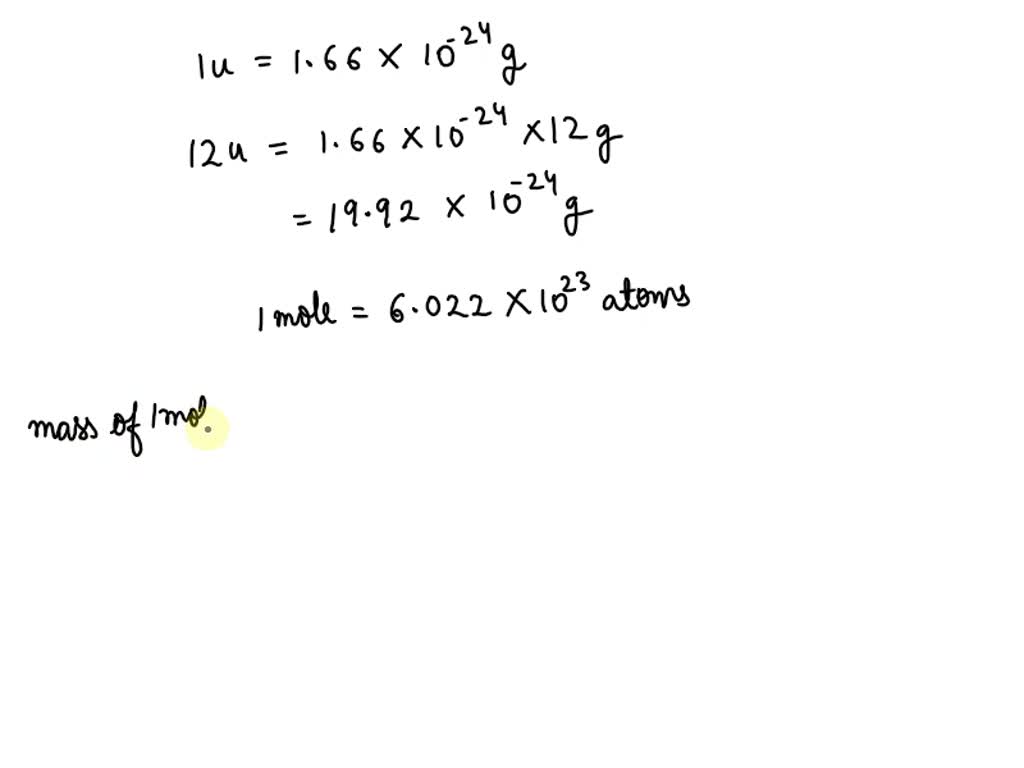 1u = 1.66 × 10⁻²⁴ g
12u = 1.66 × 10⁻²⁴ × 12 g
= 19.92 × 10⁻²⁴ g
1 mole = 6.022 × 10²³ atoms
mass of 1 mol